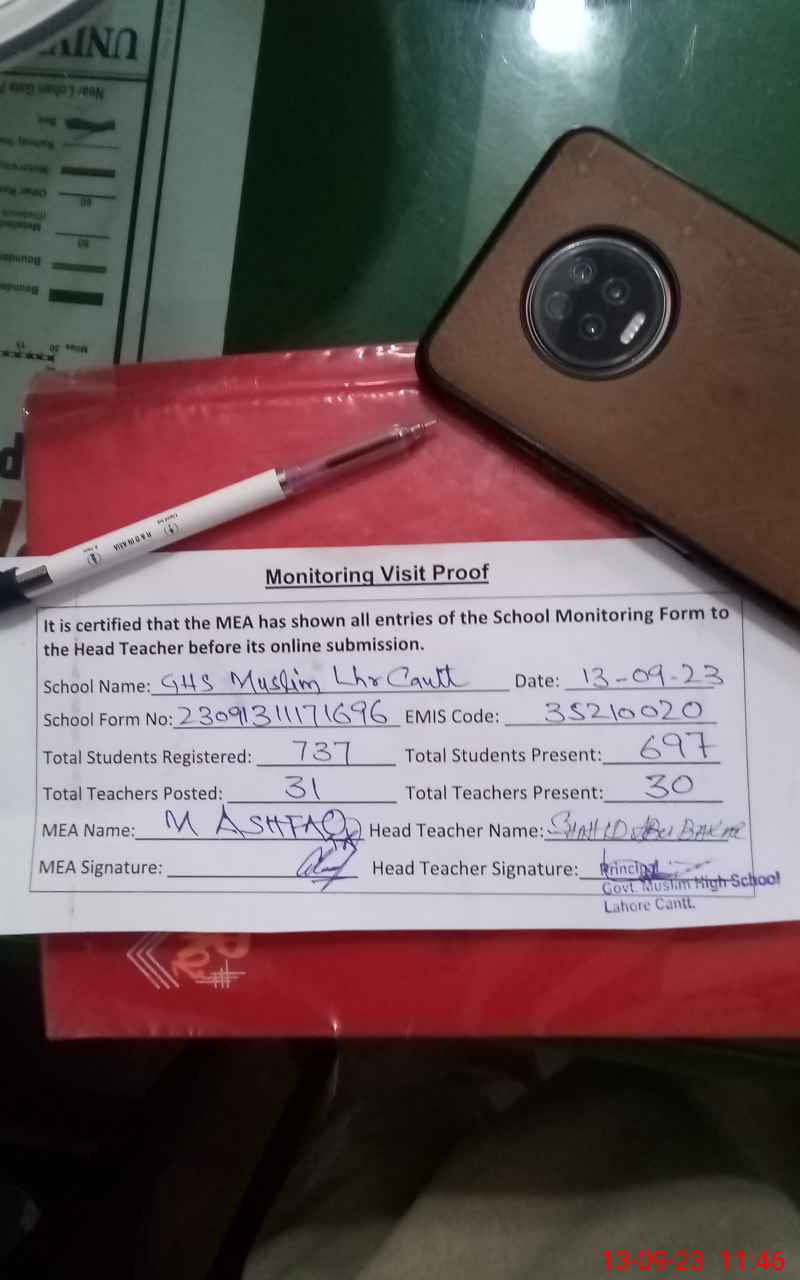 UNIV
Near Lohari Gate
Monitoring Visit Proof
It is certified that the MEA has shown all entries of the School Monitoring Form to
the Head Teacher before its online submission.
School Name: GHS Muslim Lhr Cantt Date: 13-09-23
School Form No: 23091311171696 EMIS Code: 35210020
Total Students Registered: 737 Total Students Present: 697
Total Teachers Posted: 31 Total Teachers Present: 30
MEA Name: M ASHFAQ Head Teacher Name: SHAHID ABU BAKAR
MEA Signature: Head Teacher Signature:
Principal
Govt. Muslim High School
Lahore Cantt.
13-09-23 11:46